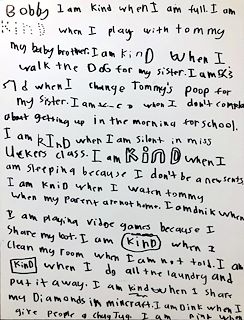 Bobby I am kind when I am full. I am
KIND when I play with tommy
my baby brother. I am kinD when I
walk the DoG for my sister. I am
when I change Tommy's poop for
my Sister. I am when I don't complain
about getting up in the morning for school.
I am kIND when I am silent in miss
class. I am KIND when I
am sleeping because I don't be a
I am kniD when I watch tommy
when my parent are not home. I am dnik when
I am playing video games because I
share my loot. I am KinD when I
clean my room when I am not told. I am
KIND when I do all the laundry and
put it away. I am kind when I share
my Diamonds in mincraft. I am Dink when I
give people a I am when